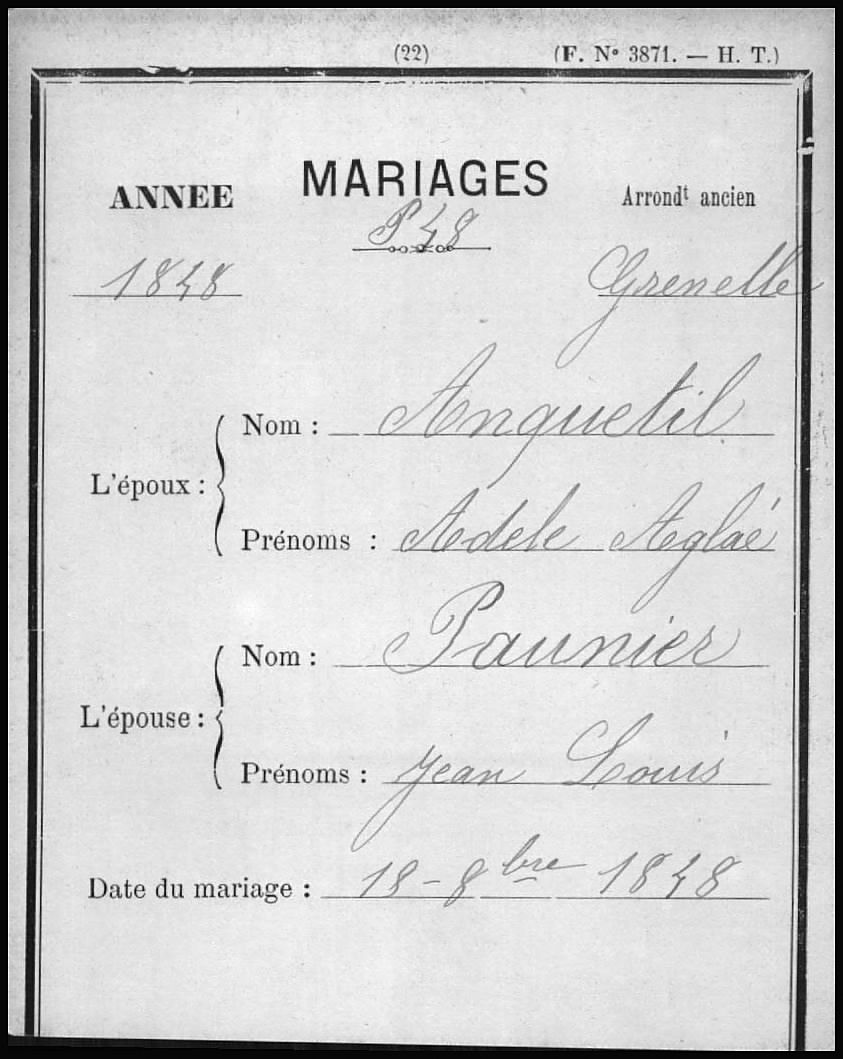 (22) (F. N° 3871. — H. T.)
ANNEE MARIAGES Arrondt ancien
P 48
1848 Grenelle
L'époux :
Nom : Anquetil
Prénoms : Adele Aglaé
L'épouse :
Nom : Paunier
Prénoms : Jean Louis
Date du mariage : 18 - 8bre 1848